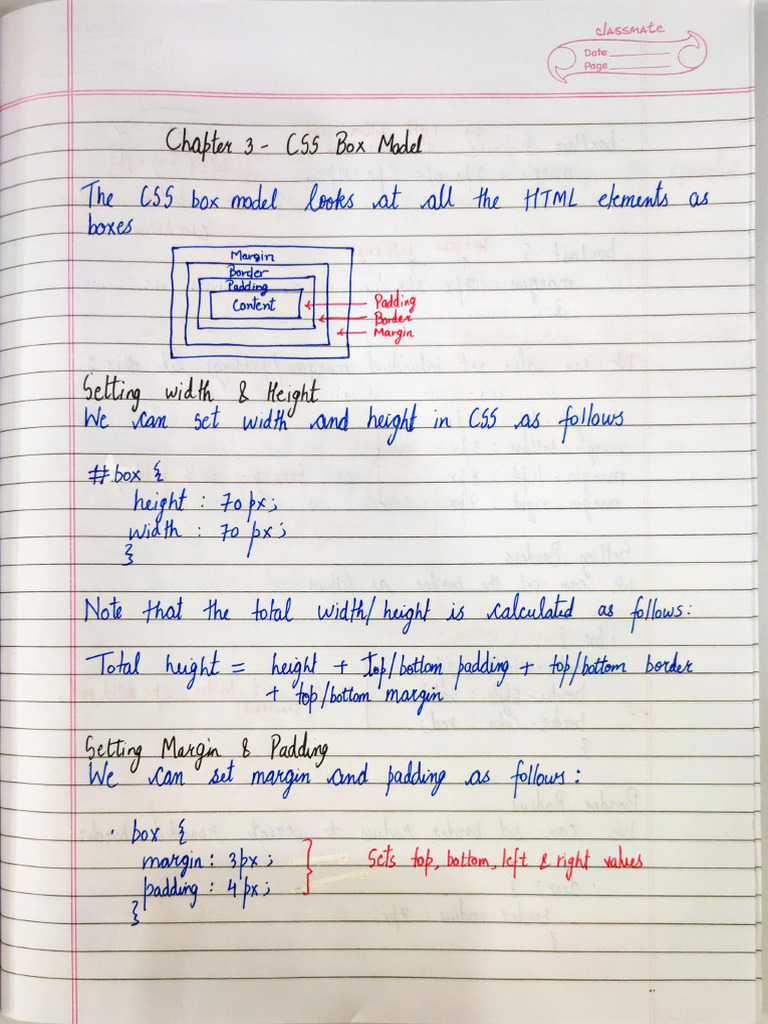 classmate
Date
Page
Chapter 3 - CSS Box Model
The CSS box model looks at all the HTML elements as
boxes
Margin
Border
Padding
Content
Padding
Border
Margin
Setting width & Height
We can set width and height in CSS as follows
#box {
height : 70px;
width : 70px;
}
Note that the total width/height is calculated as follows:
Total height = height + top/bottom padding + top/bottom border
+ top/bottom margin
Setting Margin & Padding
We can set margin and padding as follows :
. box {
margin : 3px ;
padding : 4px ;
}
Sets top, bottom, left & right values